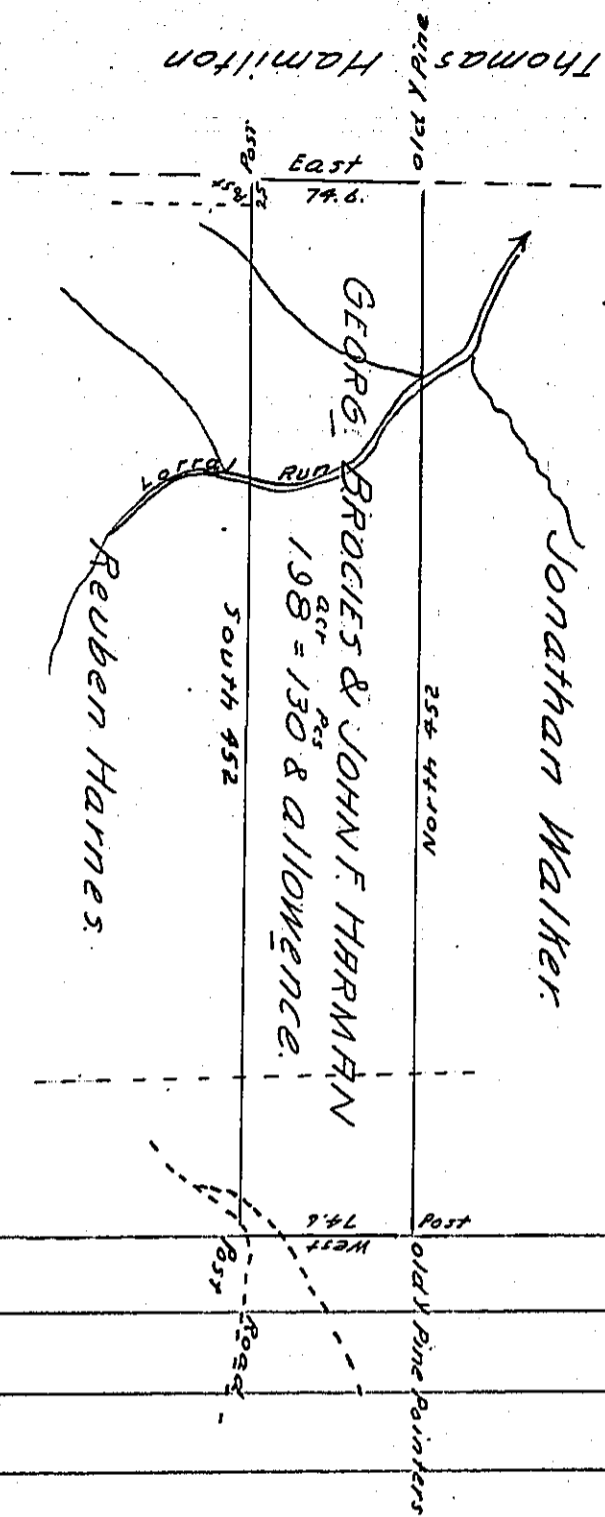 Thomas Hamilton
Old Y Pine
Post
East
74.6.
25
Jonathan Walker.
North 452
GEORG. BROCIES & JOHN F. HARMAN
acr Pcs
198 = 130 & allowence.
South 452
Run
Reuben Harnes.
Post
West
74.6
Post
Road
old Y Pine Pointers